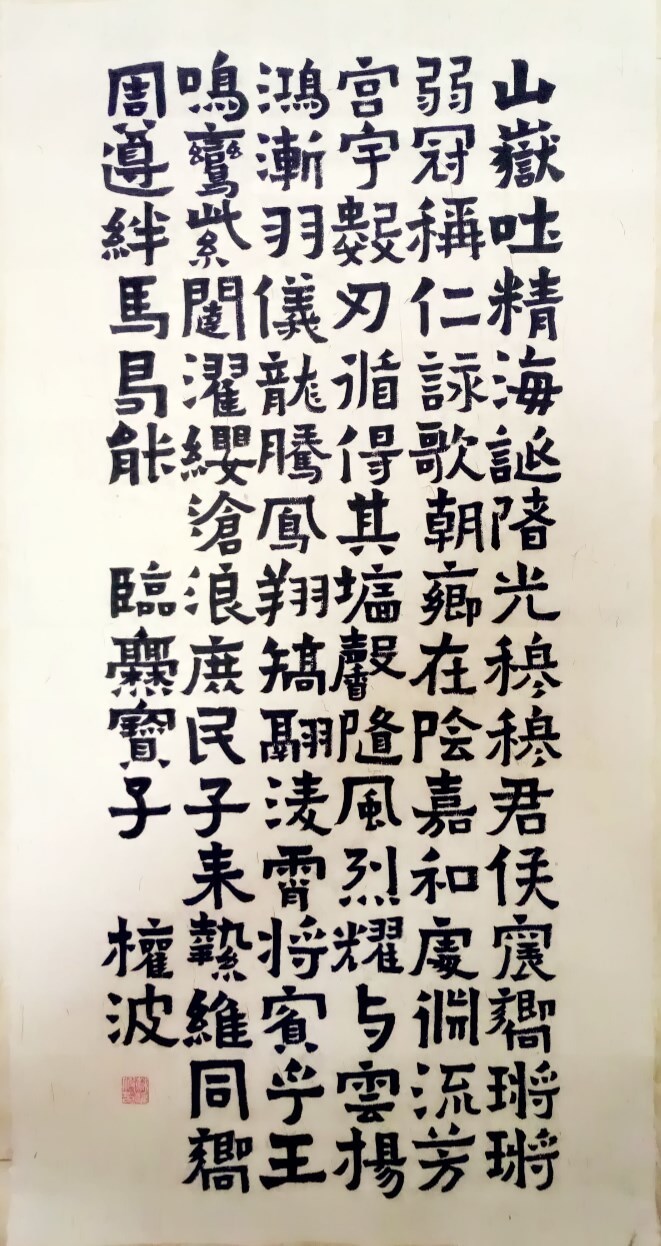 山嶽吐精海誕陼光穆穆君侯宸嚮鏘鏘
弱冠稱仁詠歌朝鄉在陰嘉和處淵流芳
宮宇數刃循得其墻馨隨風烈耀与雲揚
鴻漸羽儀龍騰鳳翔矯翮淩霄将賓乎王
鳴鸞紫闥濯纓滄浪庶民子来縶維同嚮
周遵絆馬曷能 臨爨寶子 權波